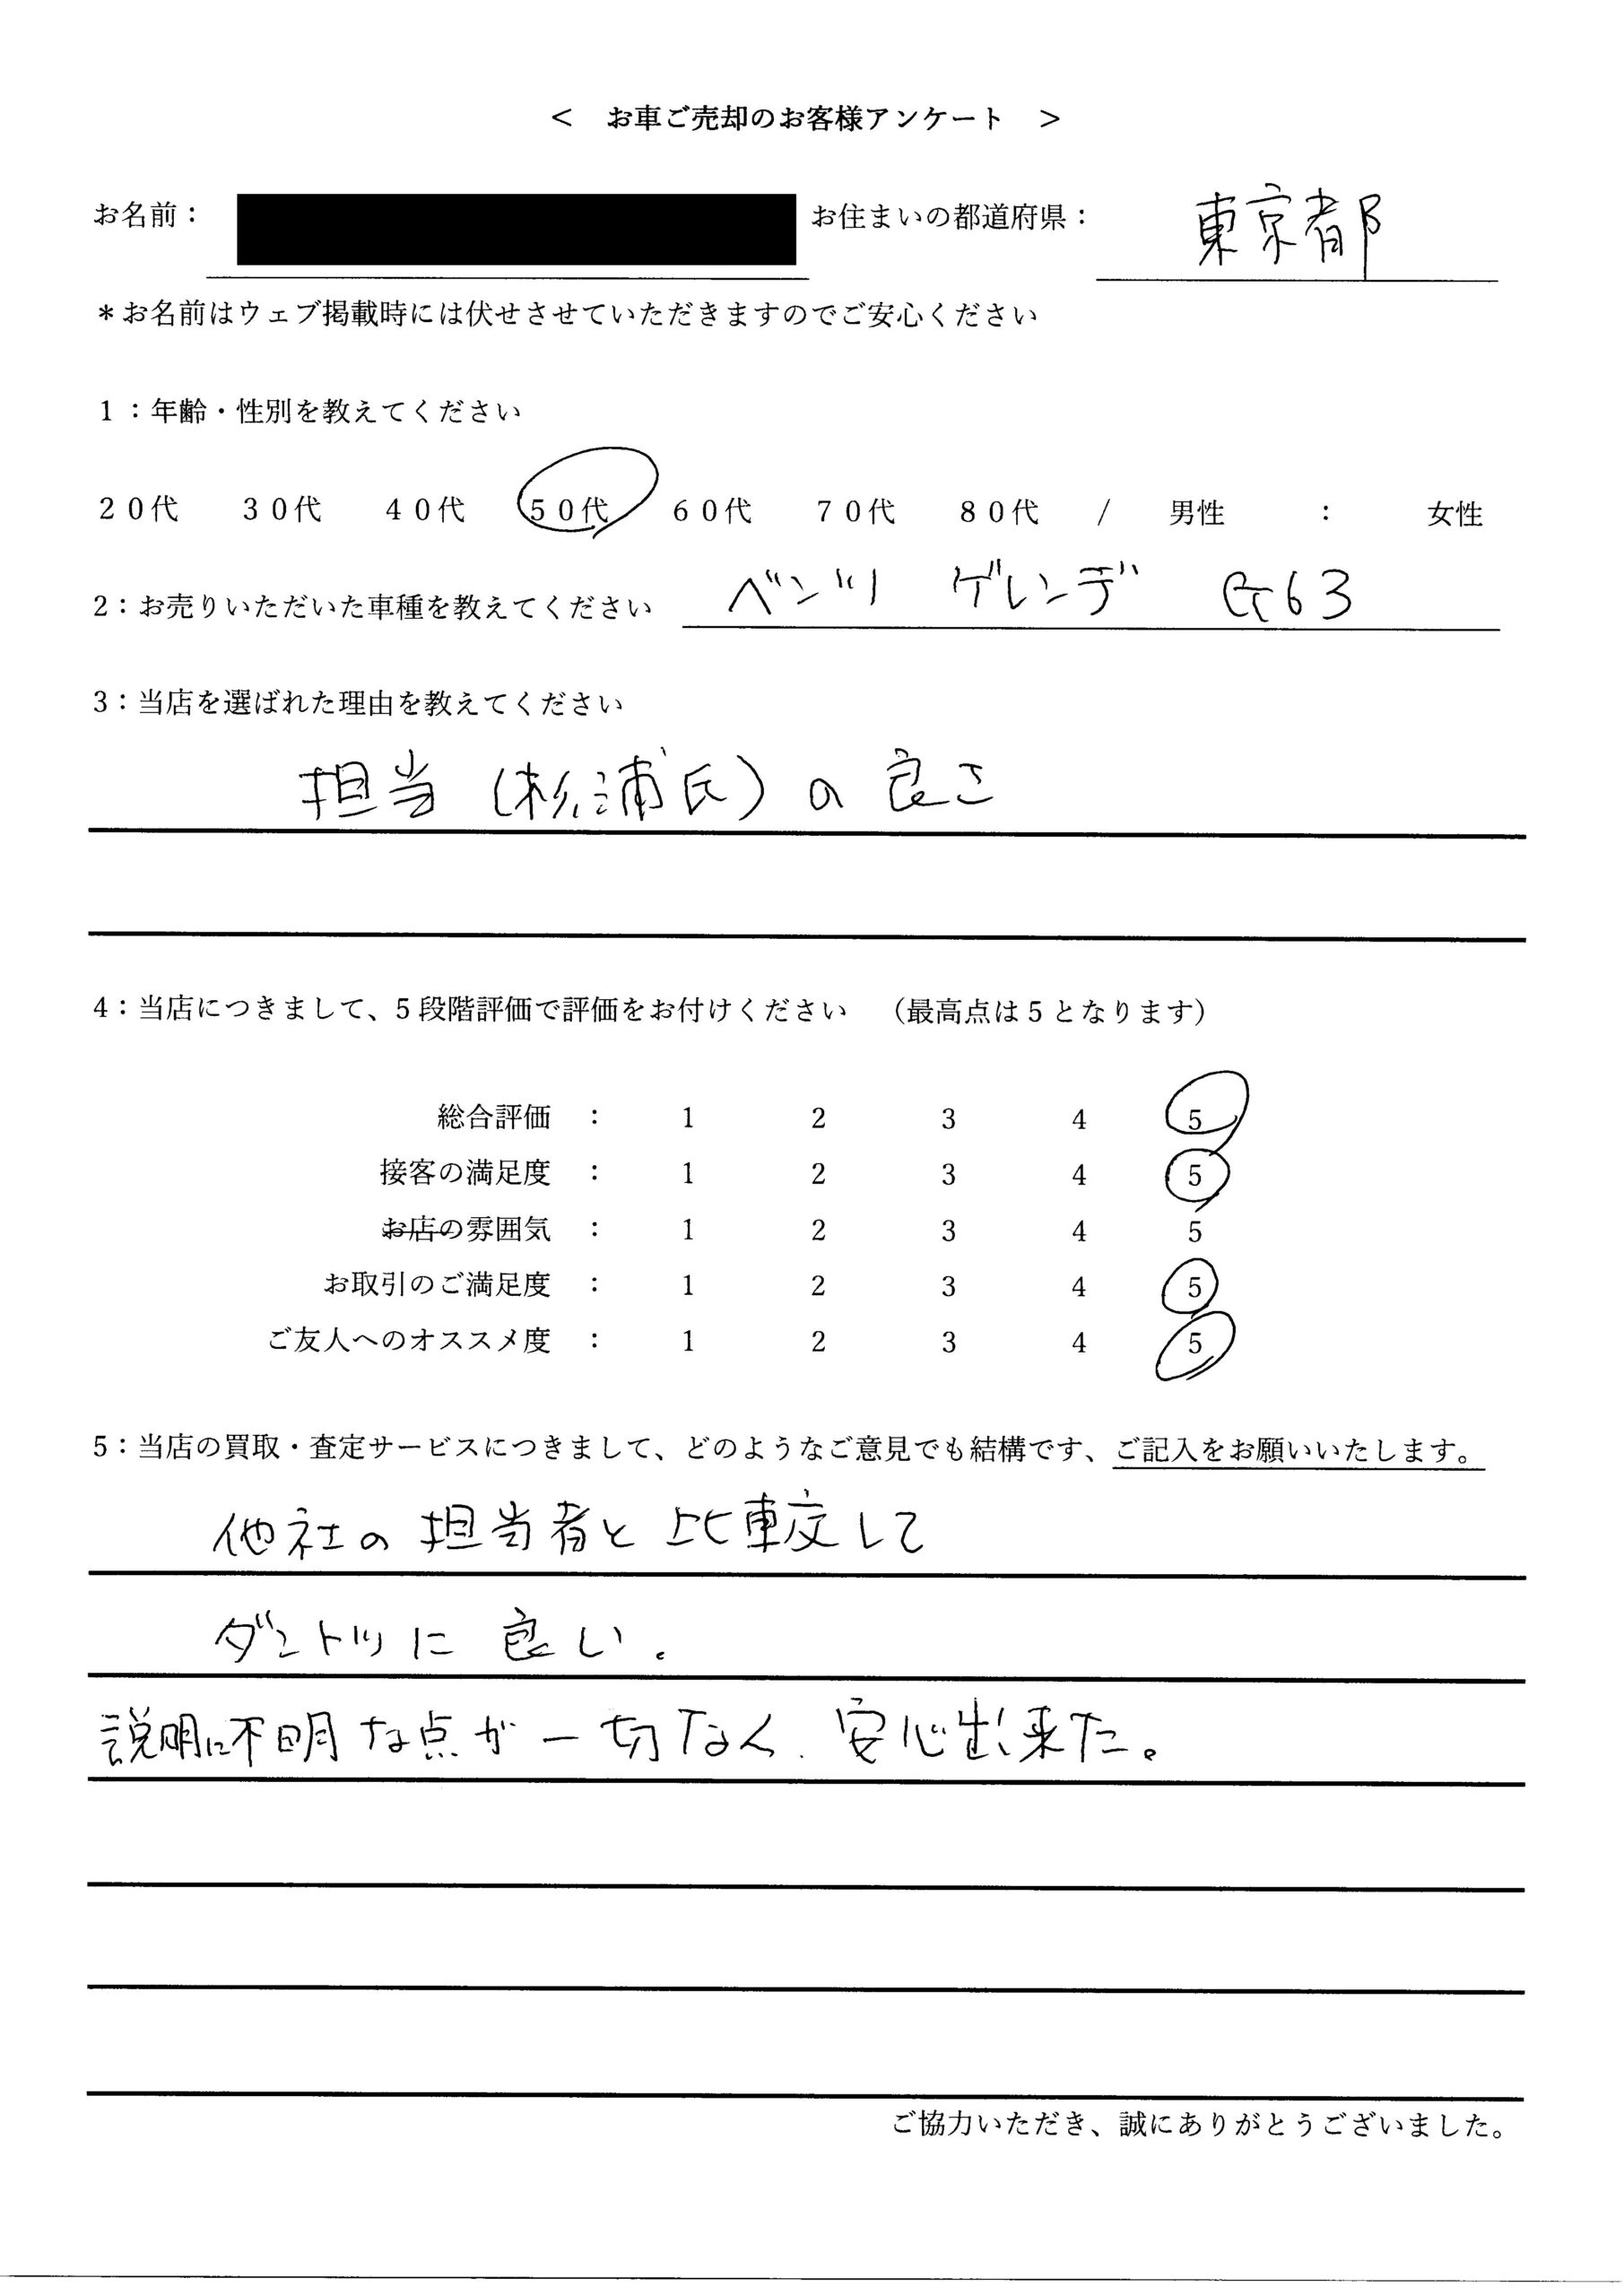 ＜　お車ご売却のお客様アンケート　＞
お名前：　お住まいの都道府県：　東京都
＊お名前はウェブ掲載時には伏せさせていただきますのでご安心ください
1：年齢・性別を教えてください
20代　30代　40代　50代　60代　70代　80代　/　男性　：　女性
2：お売りいただいた車種を教えてください　ベンツ　ゲレンデ　G63
3：当店を選ばれた理由を教えてください
担当（杉浦氏）の良さ
4：当店につきまして、5段階評価で評価をお付けください　（最高点は5となります）
総合評価　：　1　2　3　4　5
接客の満足度　：　1　2　3　4　5
お店の雰囲気　：　1　2　3　4　5
お取引のご満足度　：　1　2　3　4　5
ご友人へのオススメ度　：　1　2　3　4　5
5：当店の買取・査定サービスにつきまして、どのようなご意見でも結構です、ご記入をお願いいたします。
他社の担当者と比較して
ダントツに良い。
説明に不明な点が一切なく、安心出来た。
ご協力いただき、誠にありがとうございました。